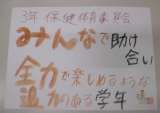 3年 保健体育委員会
みんなで助け
合い
全力で楽しめるような
迫力のある学年